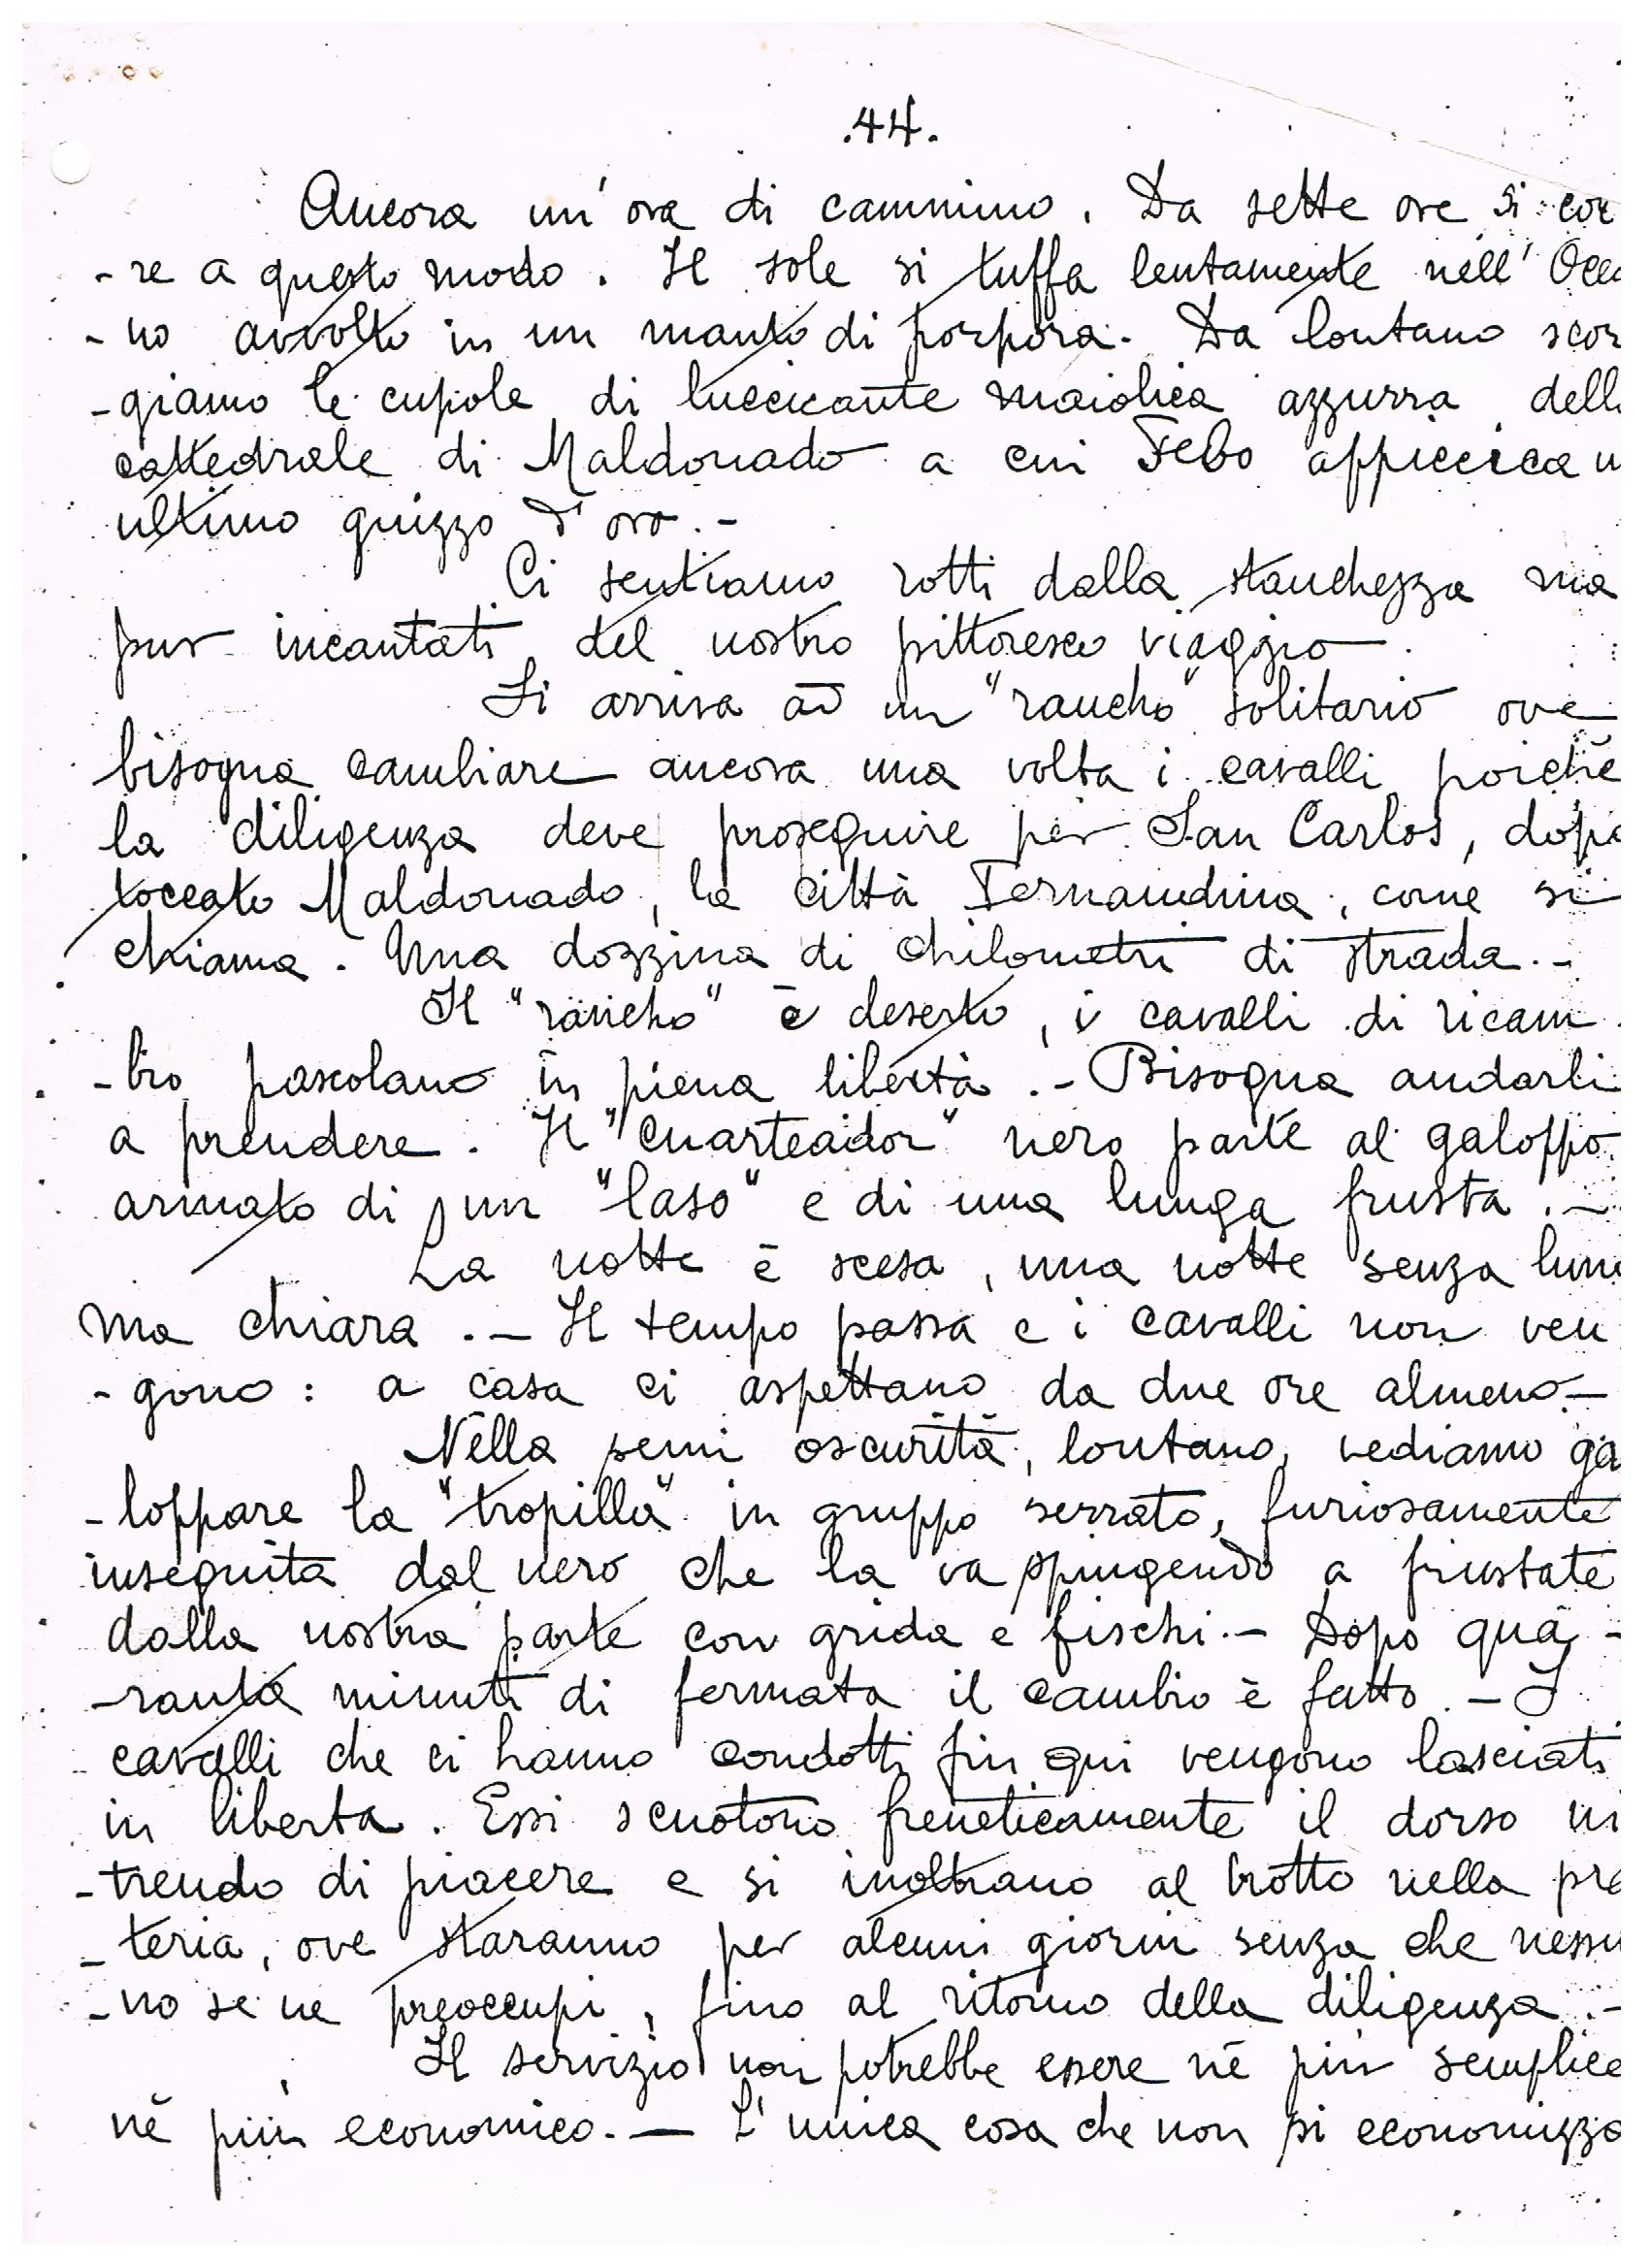 .44.
Ancora un'ora di cammino. Da sette ore si cor
-re a questo modo. Il sole si tuffa lentamente nell'Ocea
-no avvolto in un manto di porpora. Da lontano scor
-giamo le cupole di luccicante maiolica azzurra dell
cattedrale di Maldonado a cui Febo appiccica u
ultimo guizzo d'oro.-
Ci sentiamo rotti dalla stanchezza ma
pur incantati del nostro pittoresco viaggio.
Si arriva ad un "rancho" solitario ove
bisogna cambiare ancora una volta i cavalli poichè
la diligenza deve proseguire per San Carlos, dopo
toccato Maldonado, la città Fernandina, come si
chiama. Una dozzina di chilometri di strada.-
Il "rancho" è deserto, i cavalli di ricam
-bio pascolano in piena libertà.- Bisogna andarli
a prendere. Il "cuarteador" nero parte al galoppo
armato di un "laso" e di una lunga frusta.-
La notte è scesa, una notte senza luna
ma chiara.- Il tempo passa e i cavalli non ven
-gono: a casa ci aspettano da due ore almeno-
Nella semi oscurità, lontano, vediamo ga
-loppare la "tropilla" in gruppo serrato, furiosamente
inseguita dal nero che la va spingendo a frustate
dalla nostra parte con grida e fischi.- Dopo qua-
-ranta minuti di fermata il cambio è fatto.- I
cavalli che ci hanno condotti fin qui vengono lasciati
in liberta. Essi scuotono freneticamente il dorso ni
-trendo di piacere e si inoltrano al trotto nella pra
-teria, ove staranno per alcuni giorni senza che nessu
-no se ne preoccupi, fino al ritorno della diligenza.-
Il servizio non potrebbe essere nè più semplice
nè più economico.- L'unica cosa che non si economizza